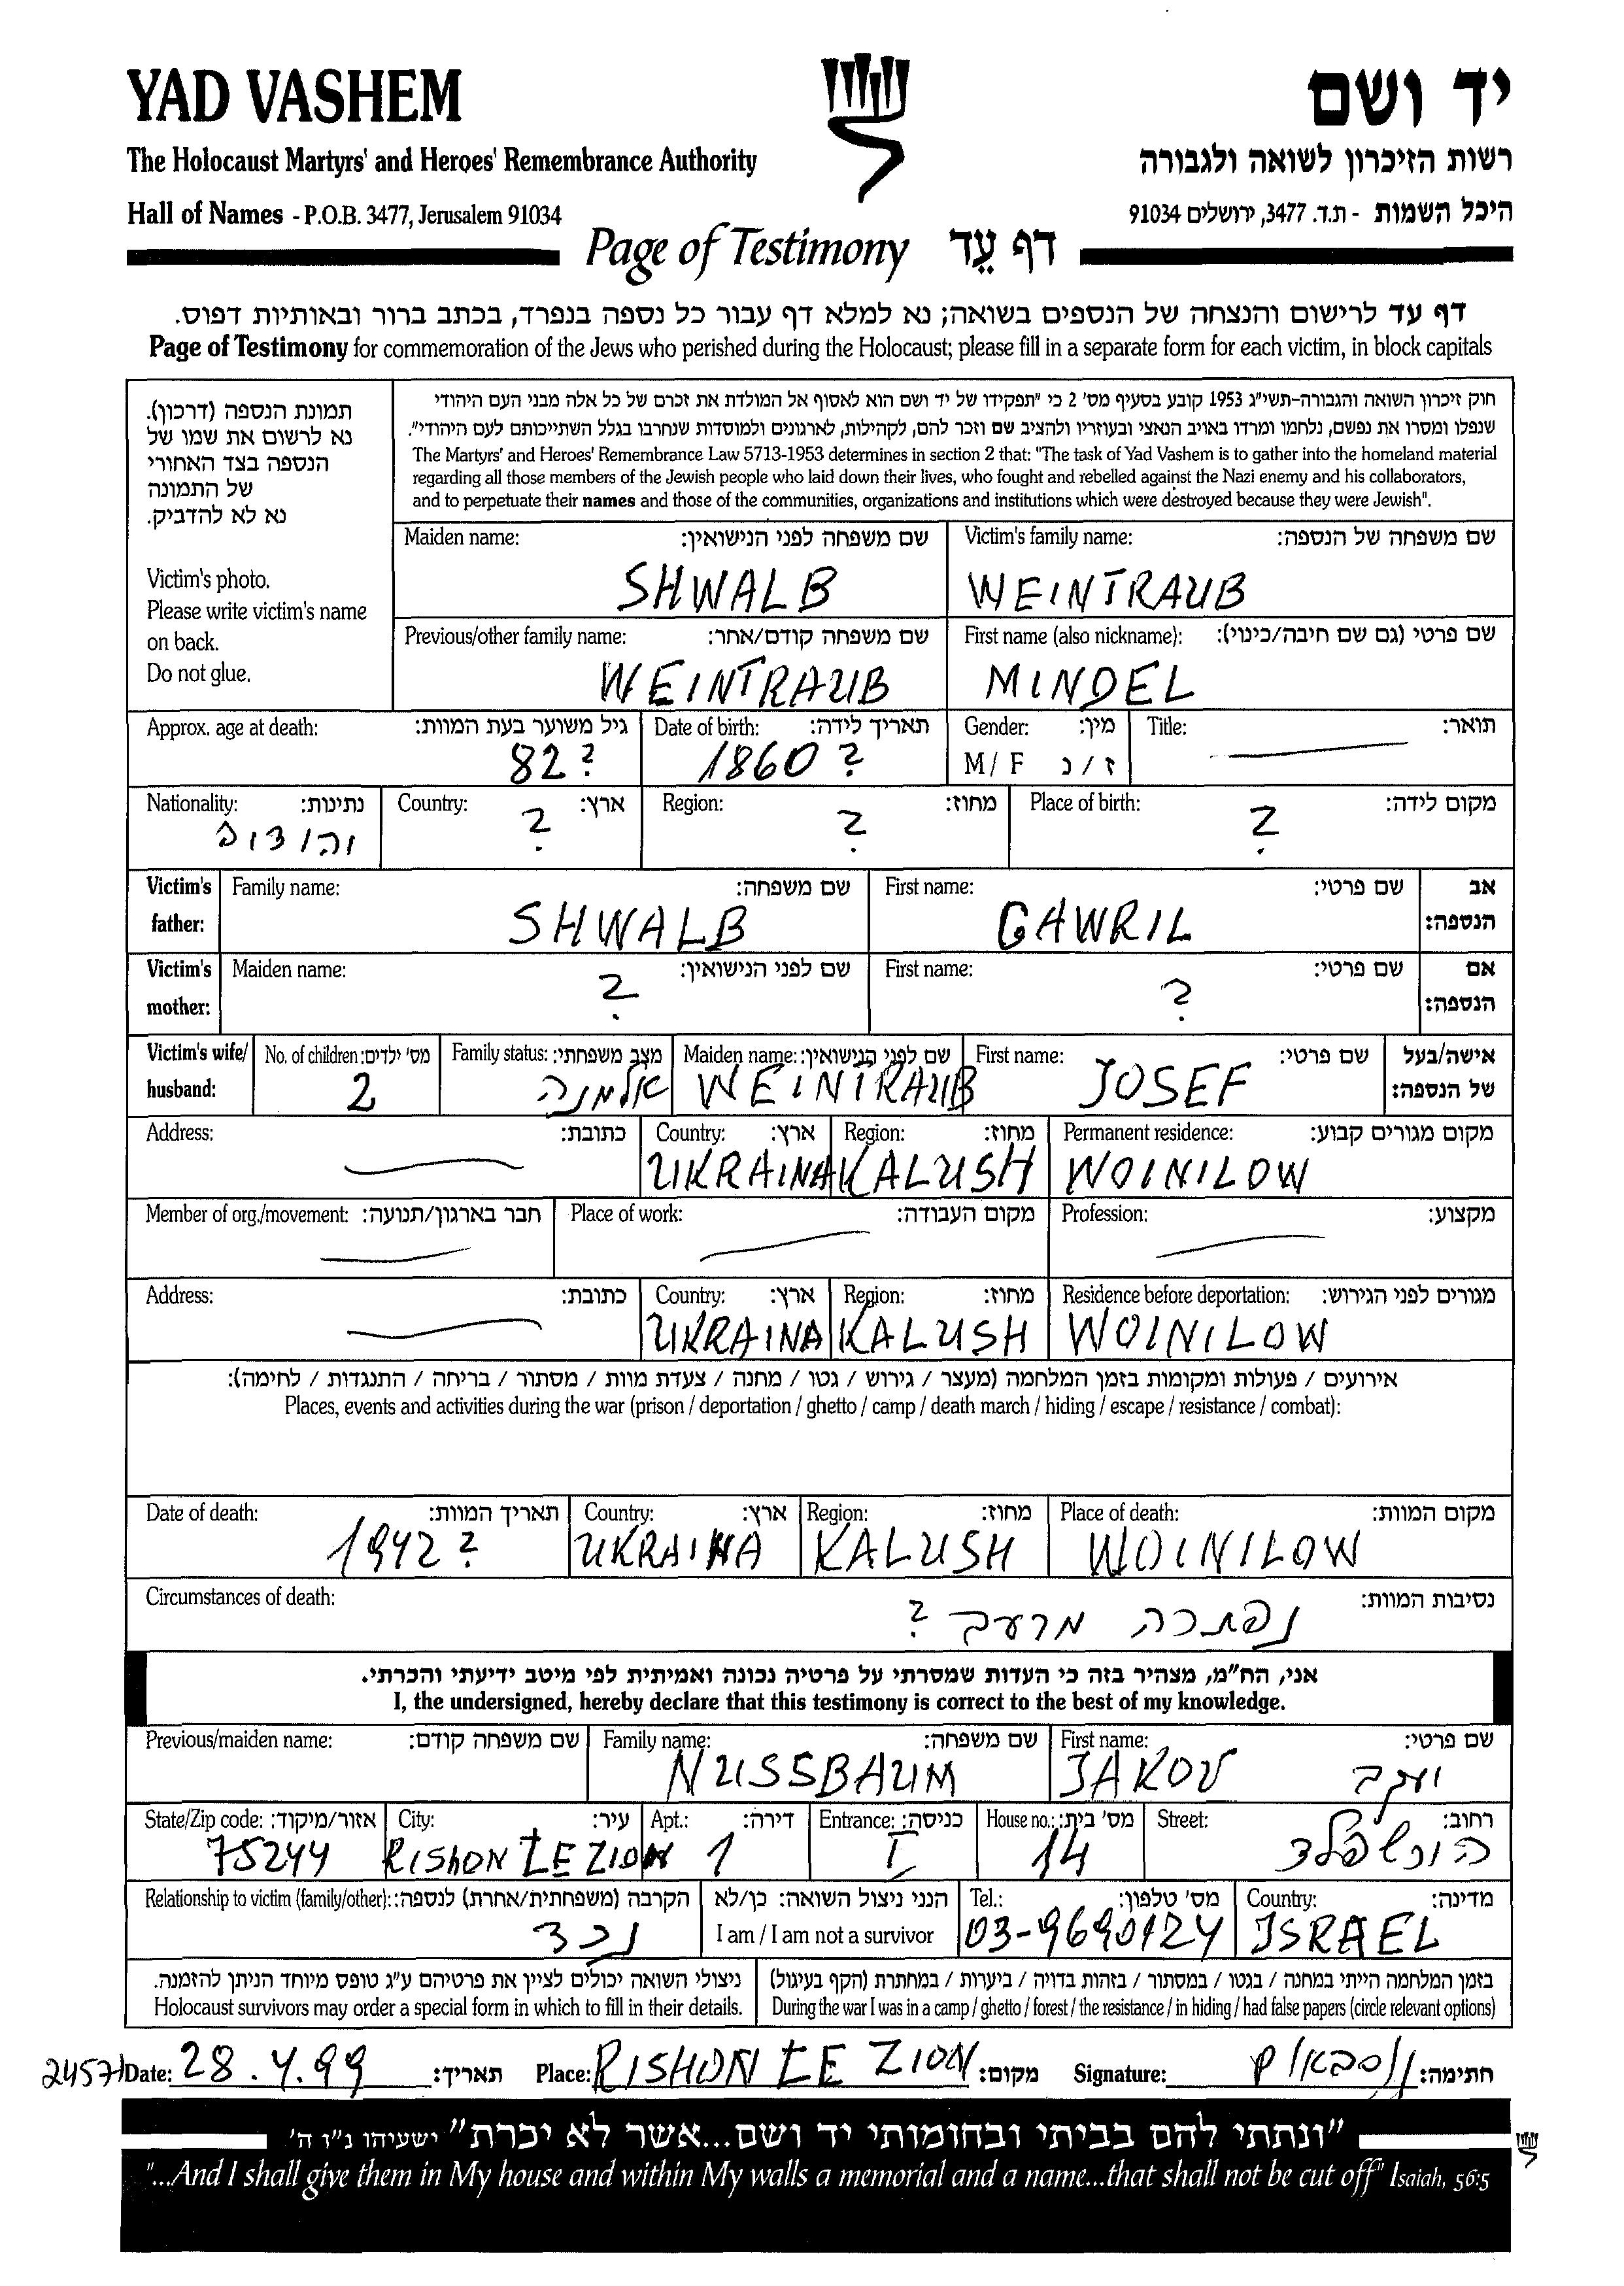 YAD VASHEM
יד ושם
The Holocaust Martyrs' and Heroes' Remembrance Authority
רשות הזיכרון לשואה ולגבורה
Hall of Names - P.O.B. 3477, Jerusalem 91034
היכל השמות - ת.ד. 3477, ירושלים 91034
Page of Testimony דף עֵד
דף עד לרישום והנצחה של הנספים בשואה; נא למלא דף עבור כל נספה בנפרד, בכתב ברור ובאותיות דפוס.
Page of Testimony for commemoration of the Jews who perished during the Holocaust; please fill in a separate form for each victim, in block capitals
תמונת הנספה (דרכון).
נא לרשום את שמו של
הנספה בצד האחורי
של התמונה
נא לא להדביק.
Victim's photo.
Please write victim's name
on back.
Do not glue.
חוק זיכרון השואה והגבורה-תשי"ג 1953 קובע בסעיף מס' 2 כי "תפקידו של יד ושם הוא לאסוף אל המולדת את זכרם של כל אלה מבני העם היהודי
שנפלו ומסרו את נפשם, נלחמו ומרדו באויב הנאצי ובעוזריו ולהציב שם וזכר להם, לקהילות, לארגונים ולמוסדות שנחרבו בגלל השתייכותם לעם היהודי".
The Martyrs' and Heroes' Remembrance Law 5713-1953 determines in section 2 that: "The task of Yad Vashem is to gather into the homeland material
regarding all those members of the Jewish people who laid down their lives, who fought and rebelled against the Nazi enemy and his collaborators,
and to perpetuate their names and those of the communities, organizations and institutions which were destroyed because they were Jewish".
Maiden name: שם משפחה לפני הנישואין:
SHWALB
Victim's family name: שם משפחה של הנספה:
WEINTRAUB
Previous/other family name: שם משפחה קודם/אחר:
WEINTRAUB
First name (also nickname): שם פרטי (גם שם חיבה/כינוי):
MINDEL
Approx. age at death: גיל משוער בעת המוות:
82 ?
Date of birth: תאריך לידה:
1860 ?
Gender: מין:
M / F ז / נ
Title: תואר:
Nationality: נתינות:
Country: ארץ:
?
Region: מחוז:
?
Place of birth: מקום לידה:
?
Victim's father:
Family name: שם משפחה:
SHWALB
First name: שם פרטי:
GAWRIL
אב הנספה:
Victim's mother:
Maiden name: שם לפני הנישואין:
?
First name: שם פרטי:
?
אם הנספה:
Victim's wife/ husband:
No. of children: מס' ילדים:
2
Family status: מצב משפחתי:
אלמנה
Maiden name: שם לפני הנישואין:
WEINTRAUB
First name: שם פרטי:
JOSEF
אישה/בעל של הנספה:
Address: כתובת:
Country: ארץ:
UKRAINA
Region: מחוז:
KALUSH
Permanent residence: מקום מגורים קבוע:
WOINILOW
Member of org./movement: חבר בארגון/תנועה:
Place of work: מקום העבודה:
Profession: מקצוע:
Address: כתובת:
Country: ארץ:
UKRAINA
Region: מחוז:
KALUSH
Residence before deportation: מגורים לפני הגירוש:
WOINILOW
אירועים / פעולות ומקומות בזמן המלחמה (מעצר / גירוש / גטו / מחנה / צעדת מוות / מסתור / בריחה / התנגדות / לחימה):
Places, events and activities during the war (prison / deportation / ghetto / camp / death march / hiding / escape / resistance / combat):
Date of death: תאריך המוות:
1942 ?
Country: ארץ:
UKRAINA
Region: מחוז:
KALUSH
Place of death: מקום המוות:
WOINILOW
Circumstances of death: נסיבות המוות:
נפתרה מרעב ?
אני, הח"מ, מצהיר בזה כי העדות שמסרתי על פרטיה נכונה ואמיתית לפי מיטב ידיעתי והכרתי.
I, the undersigned, hereby declare that this testimony is correct to the best of my knowledge.
Previous/maiden name: שם משפחה קודם:
Family name: שם משפחה:
NUSSBAUM
First name: שם פרטי:
JAKOV יעקב
State/Zip code: אזור/מיקוד:
75244
City: עיר:
RISHON LE ZION
Apt.: דירה:
1
Entrance: כניסה:
I
House no.: מס' בית:
14
Street: רחוב:
הירשפלד
Relationship to victim (family/other): הקרבה (משפחתית/אחרת) לנספה:
נכד
הנני ניצול השואה: כן/לא
I am / I am not a survivor
Tel.: מס' טלפון:
03-9690124
Country: מדינה:
ISRAEL
ניצולי השואה יכולים לציין את פרטיהם ע"ג טופס מיוחד הניתן להזמנה.
Holocaust survivors may order a special form in which to fill in their details.
בזמן המלחמה הייתי במחנה / בגטו / במסתור / בזהות בדויה / ביערות / במחתרת (הקף בעיגול)
During the war I was in a camp / ghetto / forest / the resistance / in hiding / had false papers (circle relevant options)
24571 Date: 28.4.99 תאריך: Place: RISHON LE ZION מקום: Signature: נוסבאום חתימה:
"ונתתי להם בביתי ובחומותי יד ושם...אשר לא יכרת" ישעיהו נ"ו ה'
"...And I shall give them in My house and within My walls a memorial and a name...that shall not be cut off" Isaiah, 56:5